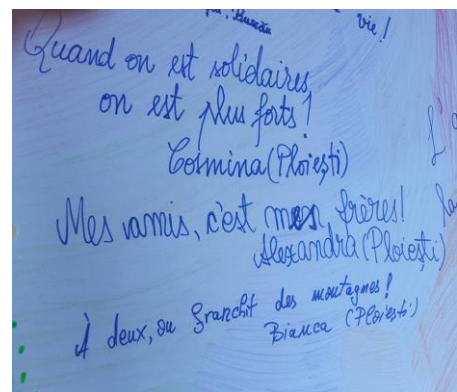 vie!
Quand on est solidaires,
on est plus forts!
Cosmina (Ploiești)
Mes amis, c'est mes frères!
Alexandra (Ploiești)
À deux, on franchit des montagnes!
Bianca (Ploiești)